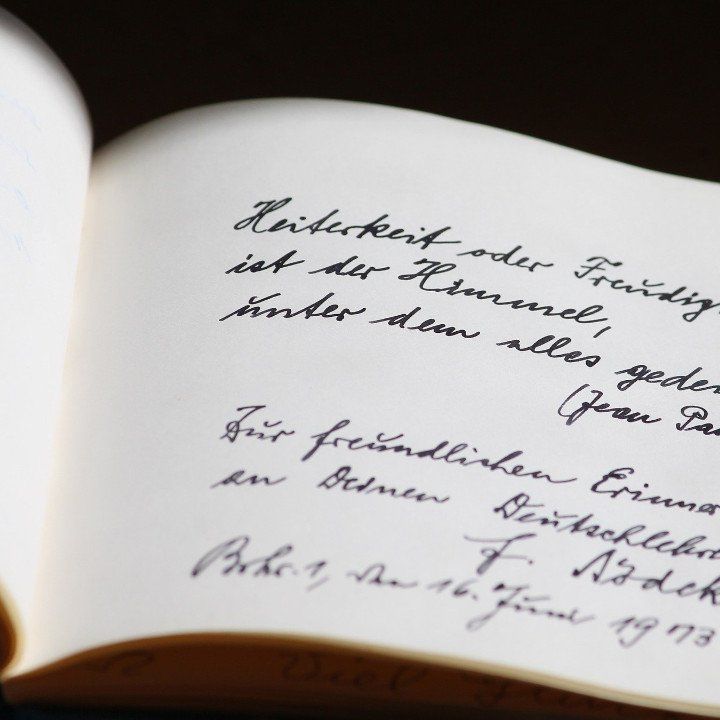 Heiterkeit oder Freudig
ist der Himmel,
unter dem alles gedei
(Jean Pau
Zur freundlichen Erinner
an Deinen Deutschlehr
16. Juni 1973
Viel